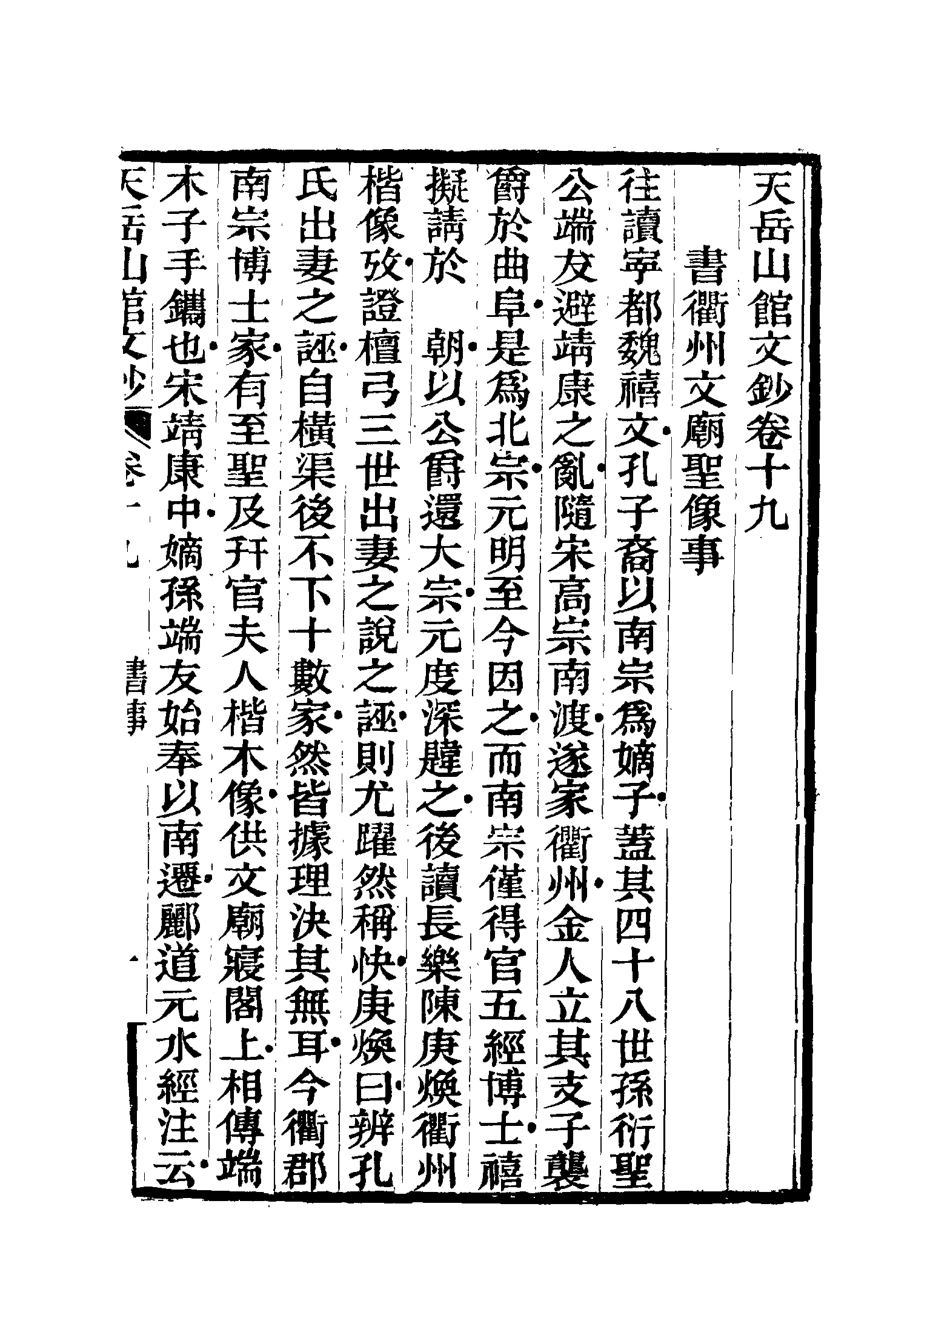 天岳山館文鈔卷十九
書衢州文廟聖像事
往讀寜都魏禧文孔子裔以南宗爲嫡子蓋其四十八世孫衍聖
公端友避靖康之亂隨宋高宗南渡遂家衢州金人立其支子襲
爵於曲阜是爲北宗元明至今因之而南宗僅得官五經博士禧
擬請於　朝以公爵還大宗元度深韙之後讀長樂陳庚煥衢州
楷像攷證檀弓三世出妻之說之誣則尤躍然稱快庚煥曰辨孔
氏出妻之誣自橫渠後不下十數家然皆據理決其無耳今衢郡
南宗博士家有至聖及幵官夫人楷木像供文廟寢閣上相傳端
木子手鐫也宋靖康中嫡孫端友始奉以南遷酈道元水經注云
天岳山館文鈔　卷十九　書事　一